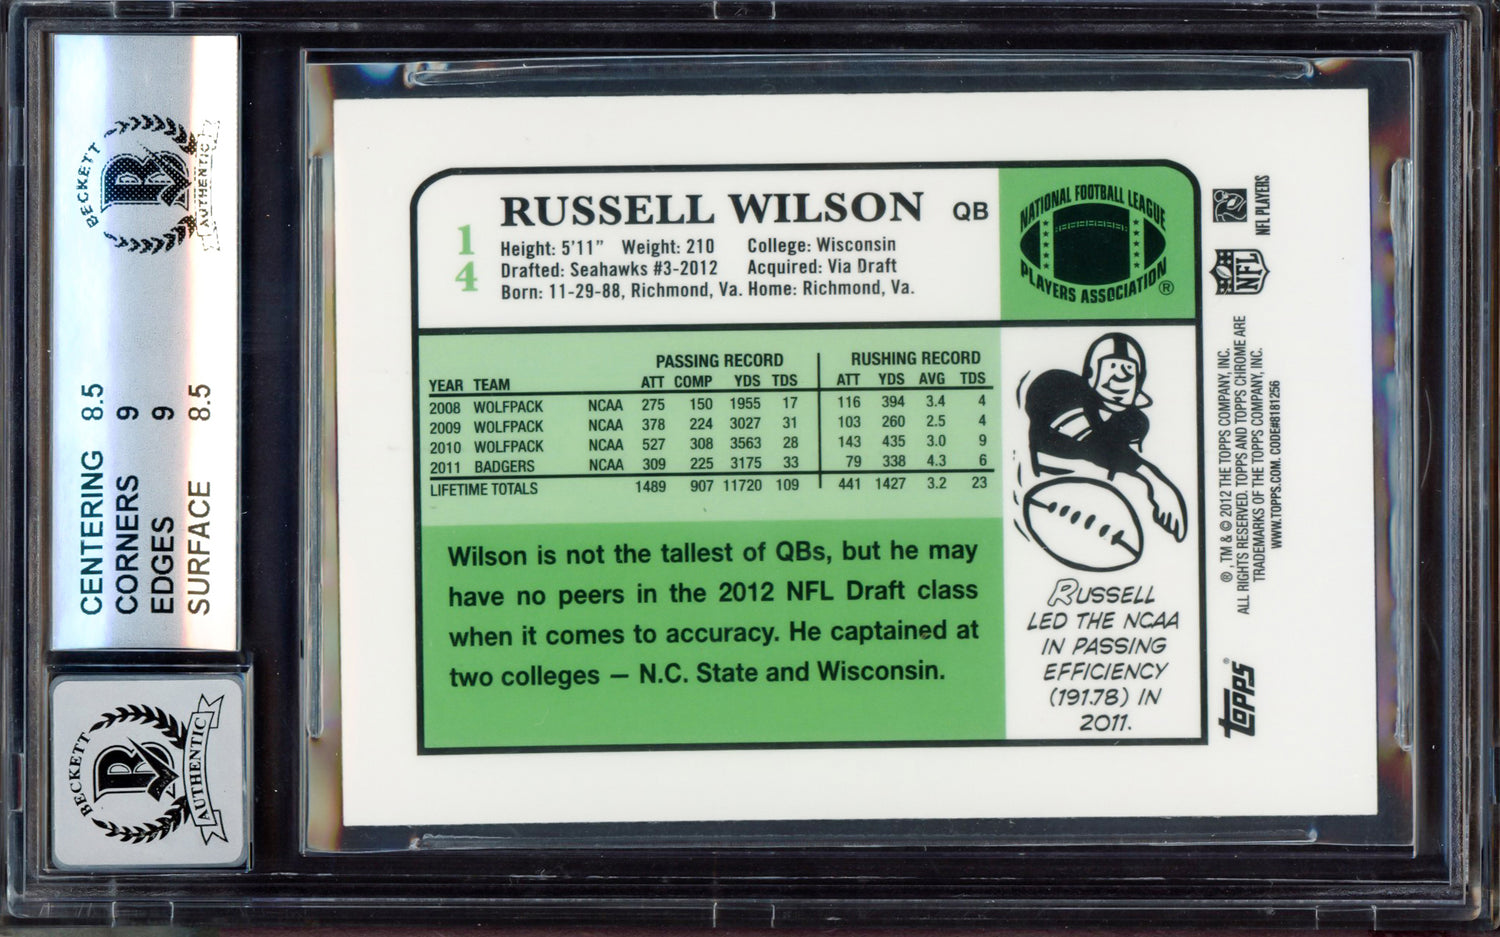 BECKETT
B
AUTHENTIC
CENTERING 8.5
CORNERS 9
EDGES 9
SURFACE 8.5
BECKETT
B
AUTHENTIC
14
RUSSELL WILSON QB
Height: 5'11" Weight: 210 College: Wisconsin
Drafted: Seahawks #3-2012 Acquired: Via Draft
Born: 11-29-88, Richmond, Va. Home: Richmond, Va.
NATIONAL FOOTBALL LEAGUE
PLAYERS ASSOCIATION®
PASSING RECORD RUSHING RECORD
YEAR TEAM ATT COMP YDS TDS ATT YDS AVG TDS
2008 WOLFPACK NCAA 275 150 1955 17 116 394 3.4 4
2009 WOLFPACK NCAA 378 224 3027 31 103 260 2.5 4
2010 WOLFPACK NCAA 527 308 3563 28 143 435 3.0 9
2011 BADGERS NCAA 309 225 3175 33 79 338 4.3 6
LIFETIME TOTALS 1489 907 11720 109 441 1427 3.2 23
Wilson is not the tallest of QBs, but he may
have no peers in the 2012 NFL Draft class
when it comes to accuracy. He captained at
two colleges — N.C. State and Wisconsin.
RUSSELL
LED THE NCAA
IN PASSING
EFFICIENCY
(191.78) IN
2011.
NFL PLAYERS
NFL
®, TM & © 2012 THE TOPPS COMPANY, INC.
ALL RIGHTS RESERVED. TOPPS AND TOPPS CHROME ARE
TRADEMARKS OF THE TOPPS COMPANY, INC.
WWW.TOPPS.COM. CODE#8181256
topps®